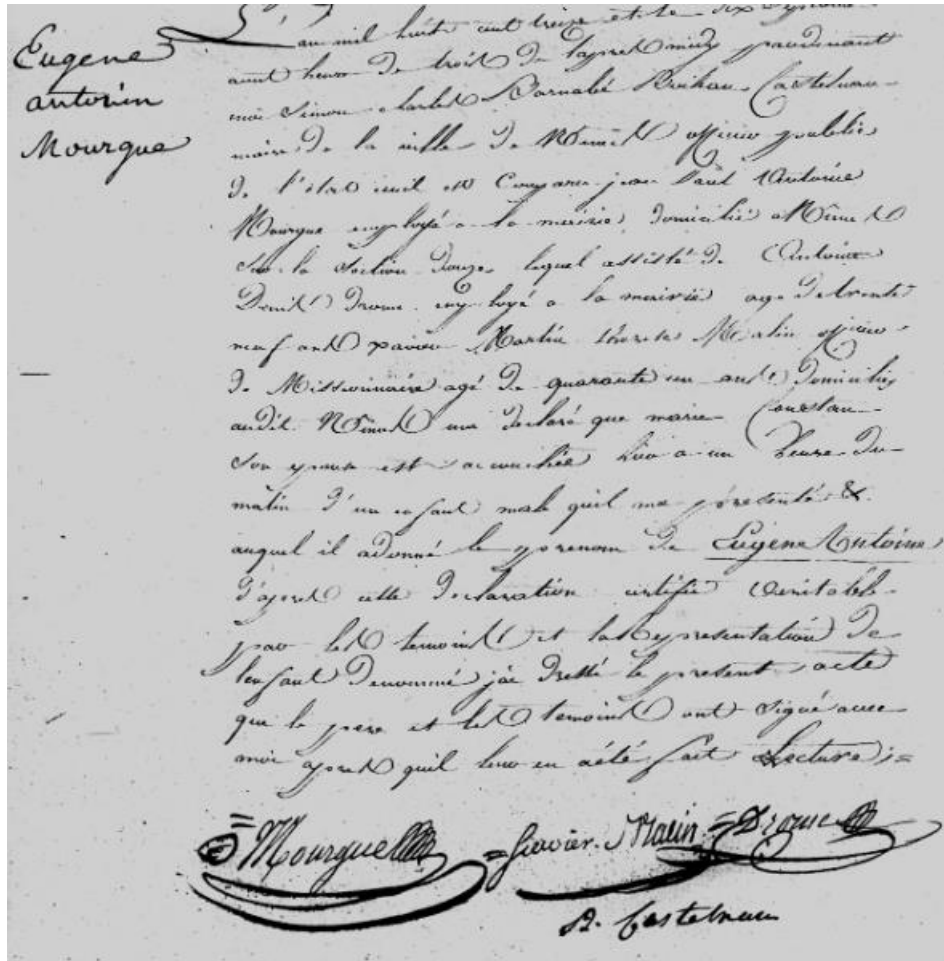 Eugene
antonin
Mourgue
L'an mil huit cent treize et le dix
avant heure de trois de l'apres midy pardevant
moi Simon charles Barnabé Castelnau
maire de la ville de officier public
de l'état civil est Comparu jean Paul Antoine
Mourgue employé a la mairie, domicilié a Nimes
sur la Section douze, lequel assisté de Antoine
Drome employé a la mairie agé de trente
neuf ans Martin officier
de agé de quarante un ans domiciliés
audit Nimes ma declaré que marie Constan
son epouse est accouchée hier a un heure du
matin d'un enfant male quil ma presenté &
auquel il a donné le prenom de Eugene Antoine
d'apres cette declaration certifiée veritable
par les temoins et la representation de
lenfant denommé jai dressé le present acte
que le pere et les temoins ont signé avec
moi apres quil leur en a été fait Lecture ;=
=Mourgue =Xavier Marin =Drome
S. Castelnau